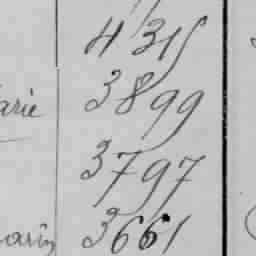 4315
arie 3899
3797
arin 3661